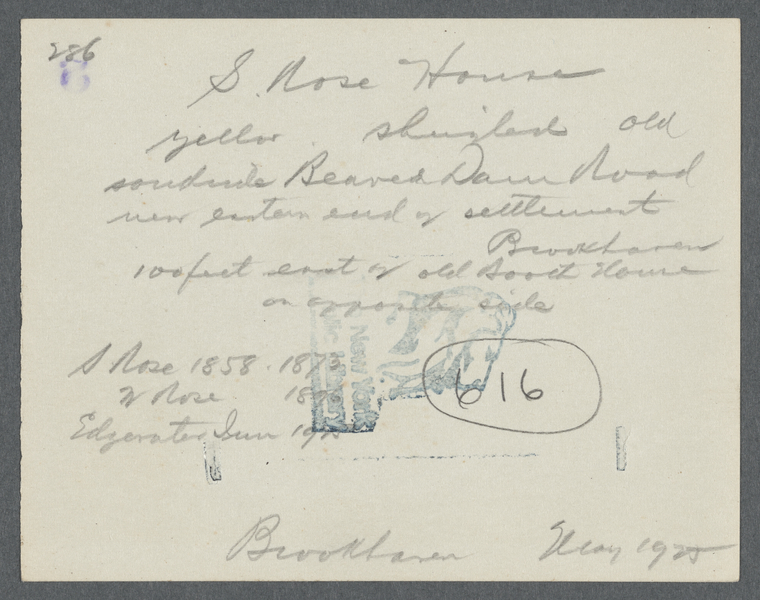 286
S. Rose House
yellow shingled old
southside Beaver Dam Road
near eastern end of settlement
Brookhaven
100 feet east of old Booth House
on opposite side
S Rose 1858 - 1873
W Rose
Edgewater Inn 1925
616
New York
Brookhaven May 1925